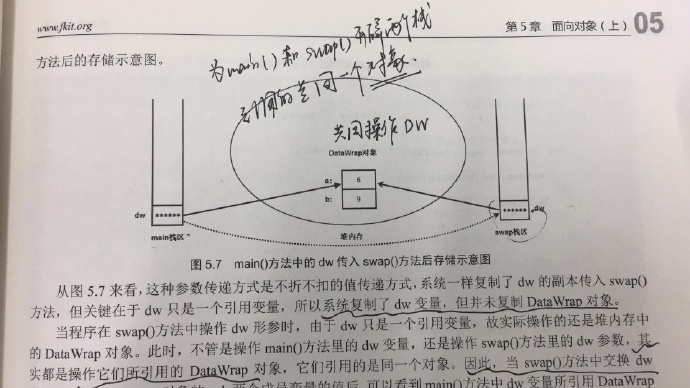 www.fkit.org
第 5 章 面向对象（上） 05
方法后的存储示意图。
为main()和swap()开辟两个栈
引用的是同一个对象.
共同操作DW
DataWrap对象
a: 6
b: 9
dw ******
****** dw
main栈区
堆内存
swap栈区
图 5.7 main()方法中的 dw 传入 swap()方法后存储示意图
从图 5.7 来看，这种参数传递方式是不折不扣的值传递方式，系统一样复制了 dw 的副本传入 swap()
方法，但关键在于 dw 只是一个引用变量，所以系统复制了 dw 变量，但并未复制 DataWrap 对象。
当程序在 swap()方法中操作 dw 形参时，由于 dw 只是一个引用变量，故实际操作的还是堆内存中
的 DataWrap 对象。此时，不管是操作 main()方法里的 dw 变量，还是操作 swap()方法里的 dw 参数，其
实都是操作它们所引用的 DataWrap 对象，它们引用的是同一个对象。因此，当 swap()方法中交换 dw
两个成员变量的值后，可以看到 main()方法中 dw 变量所引用 DataWrap